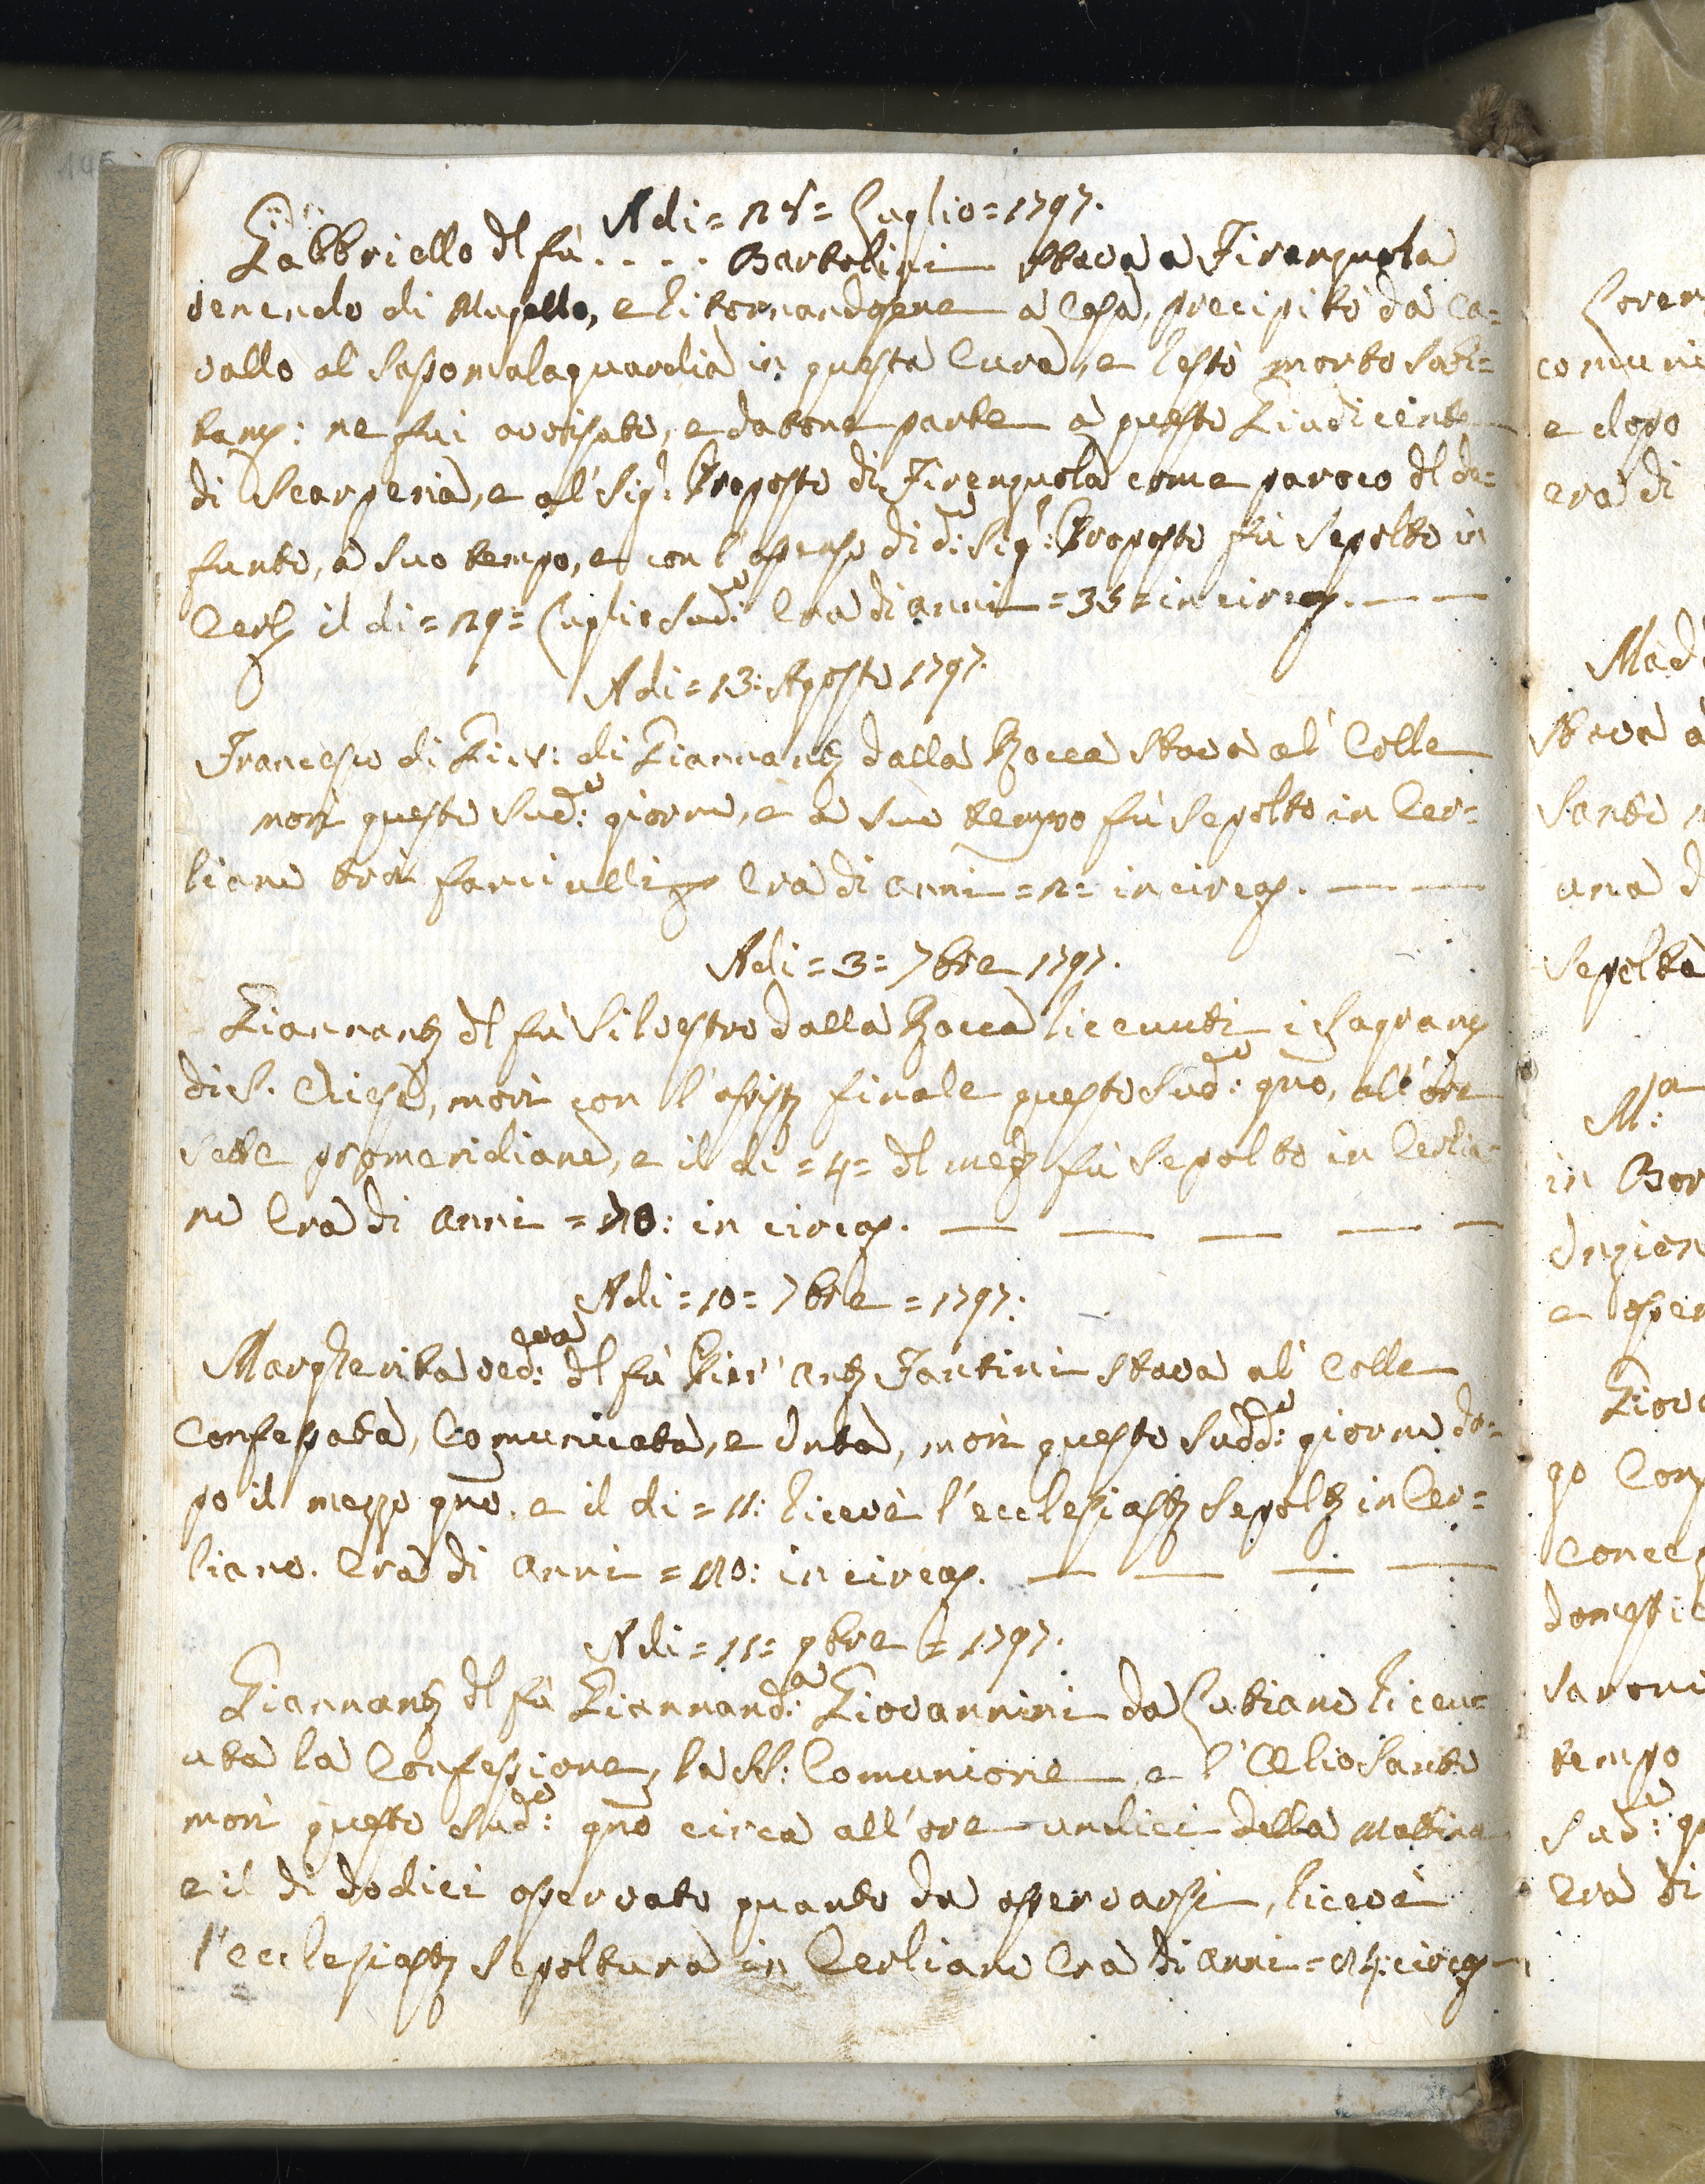 Adi = 28 = Luglio = 1797.
Gabbriello dl fù . . . . Bartolini stava a Firenzuola
venendo di Mugello, e ritornandosene à Casa, precipitò da Ca=
vallo al Sassomalaguardia in questa Cura, e restò morto subi=
tamᵉ: ne fui avvisato, e datone parte à questo Giudicente
di Scarperia, e al' Sigʳ: Proposto di Firenzuola come paroco dl de=
funto, à suo tempo, e con l'assenso di dᵒ: Sigʳ: Proposto fù sepolto in
Cerlº il di = 29 = Luglio Sudᵒ: Era di anni = 35 = in circa. — —
Adi = 13: Agosto 1797.
Francesco di Giov: di Giannantº dalla Rocca stava al' Colle
morì questo Sudᵒ: giorno, e à suo tempo fù sepolto in Cer=
liano trà fanciulli Era di anni = 2 = in circa. — —
Adi = 3 = 7bre 1797.
Giannantº dl fù Silvestro dalla Rocca riceuuti i Sagramᵗⁱ
di S. Chiesa, morì con l'assistª finale questo Sudᵒ: gno, all' ore
sette promeridiane, e il di = 4 = dl medº fù sepolto in Cerlia=
no Era di anni = 70: in circa. — — — — —
Adi = 10 = 7bre = 1797:
Margherita vedᵒᵛᵃ: dl fù Pier' Antº Fantini stava al' Colle
Confessata, Comunicata, e Unta, morì questo Suddᵒ: giorno do=
po il mezzo gno. e il di = 11: ricevè l'ecclesiastª sepoltª in Cer=
liano. Era di anni = 80: in circa. — — — —
Adi = 11 = 9bre = 1797.
Giannantº dl fù Giannandᵃ: Giovannini da Lutiano riceu=
uta la Confessione, la SS: Comunione, e l' Olio Santo
morì questo Sudᵒ: gno circa all' ore undici della Mattina
e il di dodici osservato quanto da osservarsi, ricevè
l'ecclesiastª sepoltura in Cerliano Era di anni = 84: circa —